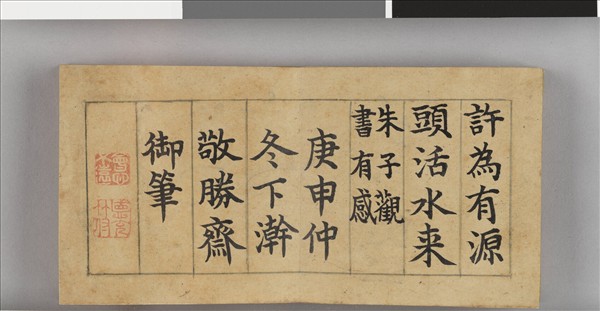 許為有源
頭活水来
朱子觀
書有感
庚申仲
冬下澣
敬勝齋
御筆